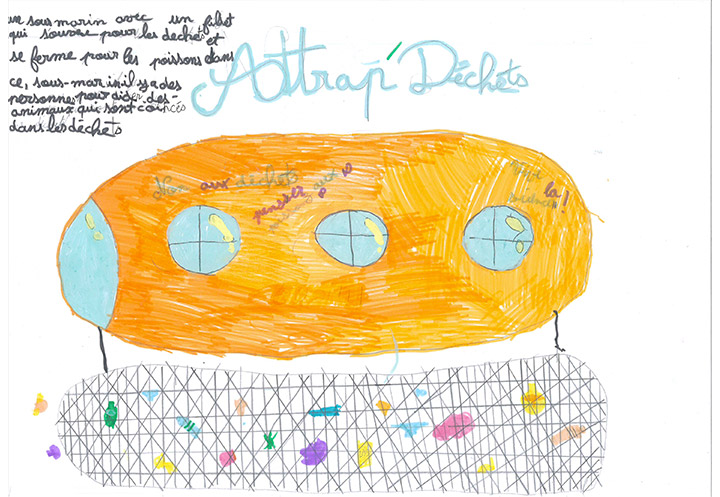 un sous marin avec un filet
qui s'ouvre pour les dechets et
se ferme pour les poissons dans
ce, sous-marin il y a des
personne pour aider des-
animaux qui sont coincés
dans les déchets
Attrap'Déchets
Non aux déchets
pensser aux
Vive
la
science!